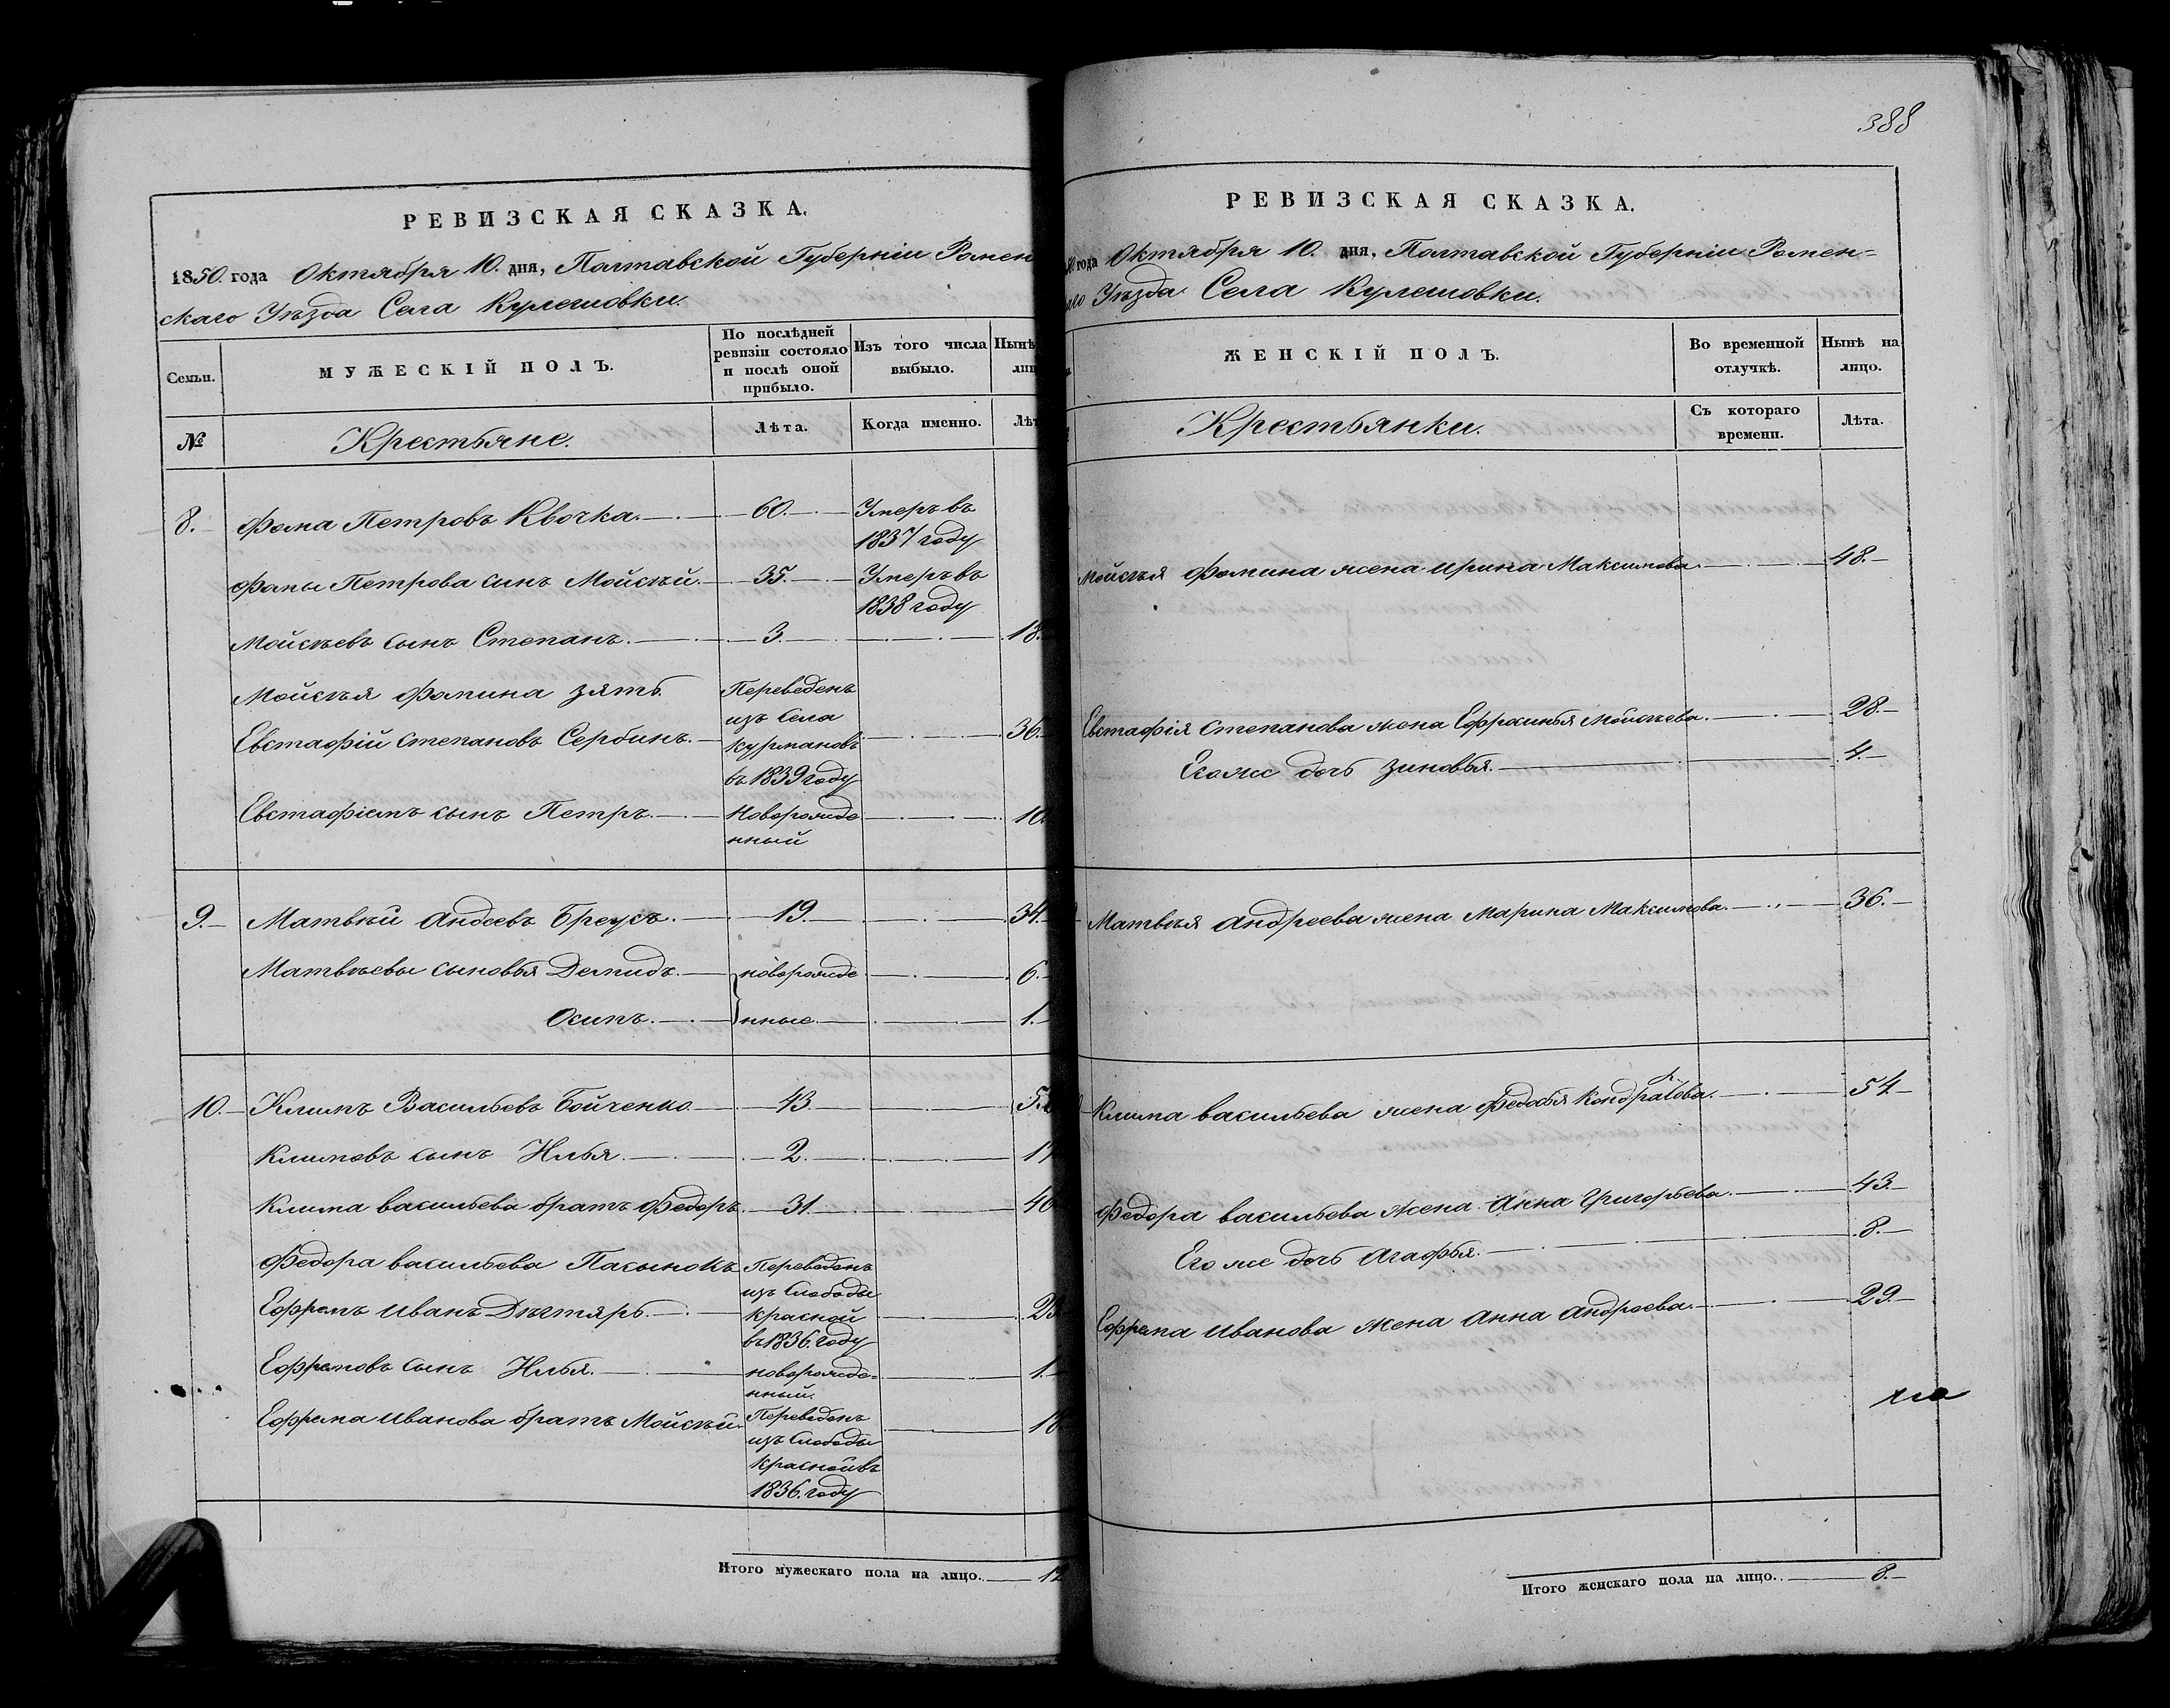 РЕВИЗСКАЯ СКАЗКА.
1850. года Октября 10. дня, Полтавской Губерніи Ромен
скаго Уѣзда Села Кулешовки.
Семьи.
МУЖЕСКІЙ ПОЛЪ.
По послѣдней
ревизіи состояло
и послѣ оной
прибыло.
Изъ того числа
выбыло.
Нынѣ
лиц
№
Крестьяне.
Лѣта.
Когда именно.
Лѣт
8. Фома Петровъ Квочка. 60. Умеръ въ
1837 году
Фомы Петрова сынъ Мойсѣй. 35. Умеръ въ
1838 году
Мойсѣевъ сынъ Степанъ. 3. 18.
Мойсѣя Фомина зять Переведенъ
изъ Села
Евстафій Степановъ Сербинъ. Курмановъ 36.
въ 1839 году
Евстафіемъ сынъ Петръ. Новорожде 10.
нный
9. Матвѣй Андеевъ Бреусъ. 19. 34.
Матвѣевы сыновья Демидъ. новорожде 6.
Осипъ. нные. 1.
10. Климъ Васильевъ Бойченко 43. 5
Климовъ сынъ Илья. 2. 17
Клима Васильева братъ Федоръ. 31. 46
Федора Васильева Пасынокъ Переведенъ
изъ Слободы
Ефремъ Иванъ Дѣгтярь. Красной 2
въ 1836. году
Ефремовъ сынъ Илья. новорожде= 1.
нный.
Ефрема Иванова братъ Мойсѣй. Переведенъ 18
изъ Слободы
Красной въ
1836. году
Итого мужескаго пола на лицо. 12
388
РЕВИЗСКАЯ СКАЗКА.
года Октября 10. дня, Полтавской Губерніи Ромен=
аго Уѣзда Села Кулешовки.
ЖЕНСКІЙ ПОЛЪ.
Во временной
отлучкѣ.
Нынѣ на
лицо.
Крестьянки.
Съ котораго
времени.
Лѣта.
Мойсѣя Фомина жена Ирина Максимова. 48.
Евстафія Степанова жена Ефросинья Мойсѣева. 28.
Его же дочь Зиновья. 4.
Матвѣя Андреева жена Марина Максимова. 36.
Клима Васильева жена Федосья Кондратова. 54.
Федора Васильева жена Анна Григорьева. 43.
Его же дочь Агафья. 8.
Ефрема Иванова жена Анна Андреева. 29.
Итого женскаго пола на лицо. 8.